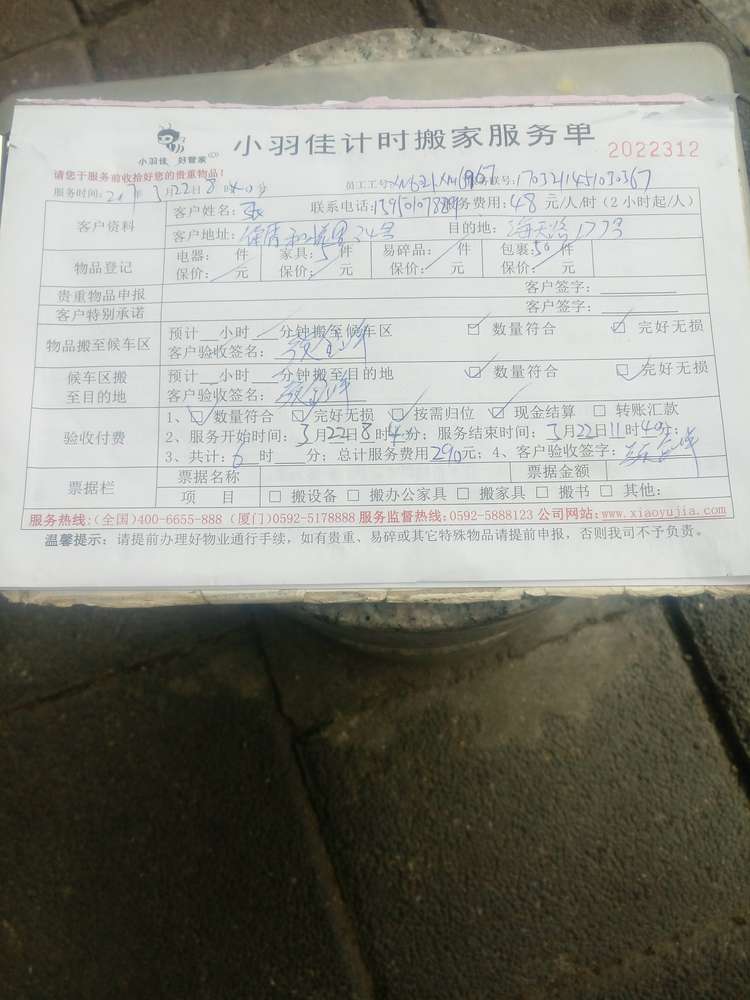 小羽佳 好管家
小羽佳计时搬家服务单
2022312
请您于服务前收拾好您的贵重物品!
服务时间: 2017年3月22日8时40分 员工工号: 服务联号:170321451030367
客户资料
客户姓名: 张 联系电话: 服务费用:48元/人/时(2小时起/人)
客户地址: 24号 目的地:海天路177号
物品登记
电器: 件 家具:5件 易碎品: 件 包裹:50件
保价: 元 保价: 元 保价: 元 保价: 元
贵重物品申报 客户签字:
客户特别承诺 客户签字:
物品搬至候车区
预计__小时__分钟搬至候车区 ☑ 数量符合 ☑ 完好无损
客户验收签名:
候车区搬至目的地
预计__小时__分钟搬至目的地 ☑ 数量符合 ☑ 完好无损
客户验收签名:
验收付费
1、☑ 数量符合 ☑ 完好无损 ☑ 按需归位 ☑ 现金结算 □ 转账汇款
2、服务开始时间:3月22日8时40分;服务结束时间:3月22日11时40分;
3、共计:6时__分;总计服务费用290元;4、客户验收签字:
票据栏
票据名称 票据金额
项 目 □ 搬设备 □ 搬办公家具 □ 搬家具 □ 搬书 □ 其他:
服务热线:(全国)400-6655-888 (厦门)0592-5178888 服务监督热线:0592-5888123 公司网站:www.xiaoyujia.com
温馨提示:请提前办理好物业通行手续,如有贵重、易碎或其它特殊物品请提前申报,否则我司不予负责。